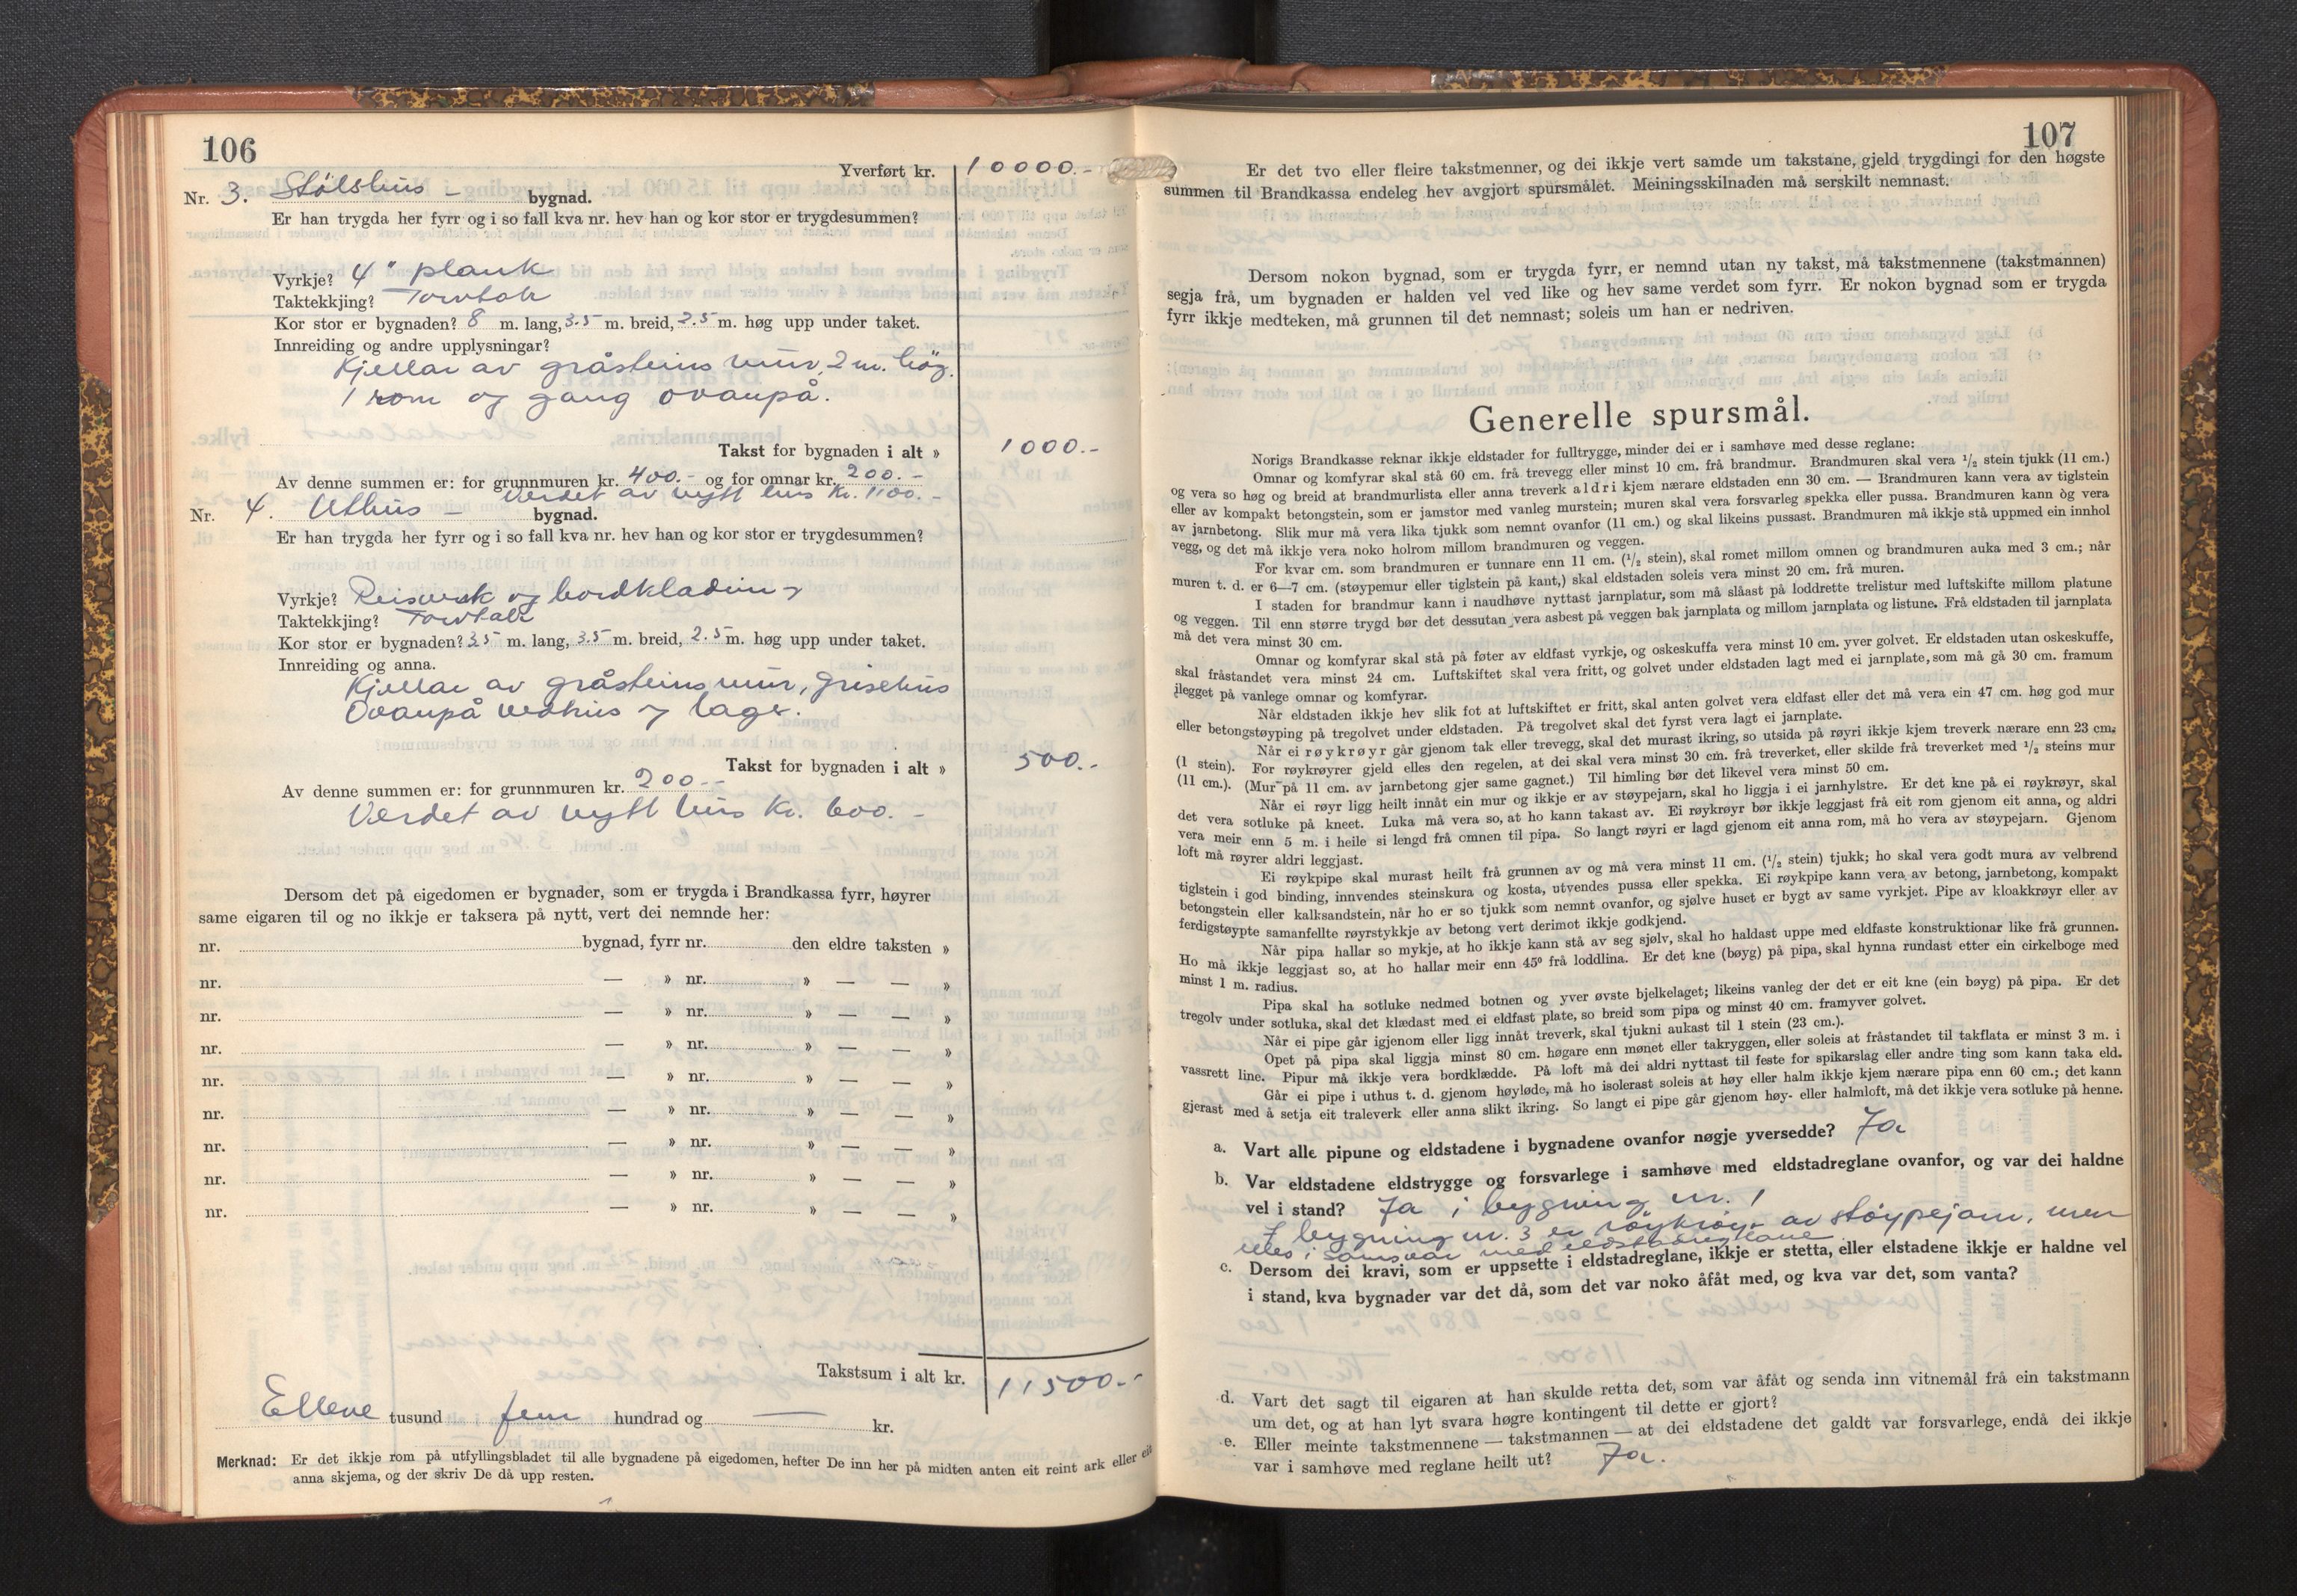 106
Yverført kr. 10000.-
Nr. 3. Stølshus - bygnad.
Er han trygda her fyrr og i so fall kva nr. hev han og kor stor er trygdesummen?
Vyrkje? 4" plank
Taktekkjing? Torvtak
Kor stor er bygnaden? 8 m. lang, 3.5 m. breid, 2.5 m. høg upp under taket.
Innreiding og andre upplysningar?
Kjellar av gråsteins mur, 2 m. høg.
1 rom og gang ovanpå.
Takst for bygnaden i alt » 1000.-
Av denne summen er: for grunnmuren kr. 400.- og for omnar kr. 200.-
Verdet av nytt hus Kr. 1100.-
Nr. 4. Uthus - bygnad.
Er han trygda her fyrr og i so fall kva nr. hev han og kor stor er trygdesummen?
Vyrkje? Reisverk og bordkledning
Taktekkjing? Torvtak
Kor stor er bygnaden? 3.5 m. lang, 3.5 m. breid, 2.5 m. høg upp under taket.
Innreiding og anna.
Kjellar av gråsteins mur, grisehus
Ovanpå vedhus og lager.
Takst for bygnaden i alt » 500.-
Av denne summen er: for grunnmuren kr. 200.-
Verdet av nytt hus Kr. 600.-
Dersom det på eigedomen er bygnader, som er trygda i Brandkassa fyrr, høyrer
same eigaren til og no ikkje er taksera på nytt, vert dei nemnde her:
nr. bygnad, fyrr nr. den eldre taksten »
nr. — » nr. » — — »
nr. — » nr. » — — »
nr. — » nr. » — — »
nr. — » nr. » — — »
nr. — » nr. » — — »
nr. — » nr. » — — »
nr. — » nr. » — — »
nr. — » nr. » — — »
Takstsum i alt kr. 11500.-
Elleve tusund fem hundrad og — kr.
Merknad: Er det ikkje rom på utfyllingsbladet til alle bygnadene på eigedomen, hefter De inn her på midten anten eit reint ark eller eit
anna skjema, og der skriv De då upp resten.
107
Er det tvo eller fleire takstmenner, og dei ikkje vert samde um takstane, gjeld trygdingi for den høgste
summen til Brandkassa endeleg hev avgjort spursmålet. Meiningsskilnaden må serskilt nemnast.
Dersom nokon bygnad, som er trygda fyrr, er nemnd utan ny takst, må takstmennene (takstmannen)
segja frå, um bygnaden er halden vel ved like og hev same verdet som fyrr. Er nokon bygnad som er trygda
fyrr ikkje medteken, må grunnen til det nemnast; soleis um han er nedriven.
Generelle spursmål.
Norigs Brandkasse reknar ikkje eldstader for fulltrygge, minder dei er i samhøve med desse reglane:
Omnar og komfyrar skal stå 60 cm. frå trevegg eller minst 10 cm. frå brandmur. Brandmuren skal vera 1/2 stein tjukk (11 cm.)
og vera so høg og breid at brandmurlista eller anna treverk aldri kjem nærare eldstaden enn 30 cm. — Brandmuren kann vera av tiglstein
eller av kompakt betongstein, som er jamstor med vanleg murstein; muren skal vera forsvarleg spekka eller pussa. Brandmuren kann òg vera
av jarnbetong. Slik mur må vera lika tjukk som nemnt ovanfor (11 cm.) og skal likeins pussast. Brandmuren må ikkje stå uppmed ein innhol
vegg, og det må ikkje vera noko holrom millom brandmuren og veggen.
For kvar cm. som brandmuren er tunnare enn 11 cm. (1/2 stein), skal romet millom omnen og brandmuren auka med 3 cm.; når
muren t. d. er 6—7 cm. (støypemur eller tiglstein på kant,) skal eldstaden soleis vera minst 20 cm. frå muren.
I staden for brandmur kann i naudhøve nyttast jarnplatur, som må slåast på loddrette trelistur med luftskifte millom platune
og veggen. Til enn større trygd bør det dessutan vera asbest på veggen bak jarnplata og millom jarnplata og listune. Frå eldstaden til jarnplata
må det vera minst 30 cm.
Omnar og komfyrar skal stå på føter av eldfast vyrkje, og oskeskuffa vera minst 10 cm. yver golvet. Er eldstaden utan oskeskuffe,
skal fråstandet vera minst 24 cm. Luftskiftet skal vera fritt, og golvet under eldstaden lagt med ei jarnplate, som må gå 30 cm. framum
ilegget på vanlege omnar og komfyrar.
Når eldstaden ikkje hev slik fot at luftskiftet er fritt, skal anten golvet vera eldfast eller det må vera ein 47 cm. høg god mur
eller betongstøyping på tregolvet under eldstaden. På tregolvet skal det fyrst vera lagt ei jarnplate.
Når ei røykrøyr går gjenom tak eller trevegg, skal det murast ikring, so utsida på røyri ikkje kjem treverk nærare enn 23 cm.
(1 stein). For røykrøyrer gjeld elles den regelen, at dei skal vera minst 30 cm. frå treverket, eller skilde frå treverket med 1/2 steins mur
(11 cm.). (Mur på 11 cm. av jarnbetong gjer same gagnet.) Til himling bør det likevel vera minst 50 cm.
Når ei røyr ligg heilt innåt ein mur og ikkje er av støypejarn, skal ho liggja i ei jarnhylstre. Er det kne på ei røykrøyr, skal
det vera sotluke på kneet. Luka må vera so, at ho kann takast av. Ei røykrøyr bør ikkje leggjast frå eit rom gjenom eit anna, og aldri
vera meir enn 5 m. i heile si lengd frå omnen til pipa. So langt røyri er lagd gjenom eit anna rom, må ho vera av støypejarn. Gjenom
loft må røyrer aldri leggjast.
Ei røykpipe skal murast heilt frå grunnen av og må vera minst 11 cm. (1/2 stein) tjukk; ho skal vera godt mura av velbrend
tiglstein i god binding, innvendes steinskura og kosta, utvendes pussa eller spekka. Ei røykpipe kann vera av betong, jarnbetong, kompakt
betongstein eller kalksandstein, når ho er so tjukk som nemnt ovanfor, og sjølve huset er bygt av same vyrkjet. Pipe av kloakkrøyr eller av
ferdigstøypte samanfellte røyrstykkje av betong vert derimot ikkje godkjend.
Når pipa hallar so mykje, at ho ikkje kann stå av seg sjølv, skal ho haldast uppe med eldfaste konstruktionar like frå grunnen.
Ho må ikkje leggjast so, at ho hallar meir enn 45° frå loddlina. Er det kne (bøyg) på pipa, skal hynna rundast etter ein cirkelboge med
minst 1 m. radius.
Pipa skal ha sotluke nedmed botnen og yver øvste bjelkelaget; likeins vanleg der det er eit kne (ein bøyg) på pipa. Er det
tregolv under sotluka, skal det klædast med ei eldfast plate, so breid som pipa og minst 40 cm. framyver golvet.
Når ei pipe går igjenom eller ligg innåt treverk, skal tjukni aukast til 1 stein (23 cm.).
Opet på pipa skal liggja minst 80 cm. høgare enn mønet eller takryggen, eller soleis at fråstandet til takflata er minst 3 m. i
vassrett line. Pipur må ikkje vera bordklædde. På loft må dei aldri nyttast til feste for spikarslag eller andre ting som kann taka eld.
Går ei pipe i uthus t. d. gjenom høyløde, må ho isolerast soleis at høy eller halm ikkje kjem nærare pipa enn 60 cm.; det kann
gjerast med å setja eit traleverk eller anna slikt ikring. So langt ei pipe går gjenom høy- eller halmloft, må det ikkje vera sotluke på henne.
a. Vart alle pipune og eldstadene i bygnadene ovanfor nøgje yversedde? Ja
b. Var eldstadene eldstrygge og forsvarlege i samhøve med eldstadreglane ovanfor, og var dei haldne
vel i stand? Ja i bygning nr. 1
I bygning nr. 3 er røykrøyr av støypejarn, men
elles i samsvar med eldstadreglane
c. Dersom dei kravi, som er uppsette i eldstadreglane, ikkje er stetta, eller elstadene ikkje er haldne vel
i stand, kva bygnader var det då, som det var noko åfåt med, og kva var det, som vanta?
d. Vart det sagt til eigaren at han skulde retta det, som var åfåt og senda inn vitnemål frå ein takstmann
um det, og at han lyt svara høgre kontingent til dette er gjort?
e. Eller meinte takstmennene — takstmannen — at dei eldstadene det galdt var forsvarlege, endå dei ikkje
var i samhøve med reglane heilt ut? Ja.